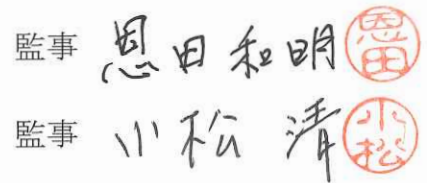 監事 恩田和明 恩田
監事 小松 清 小松